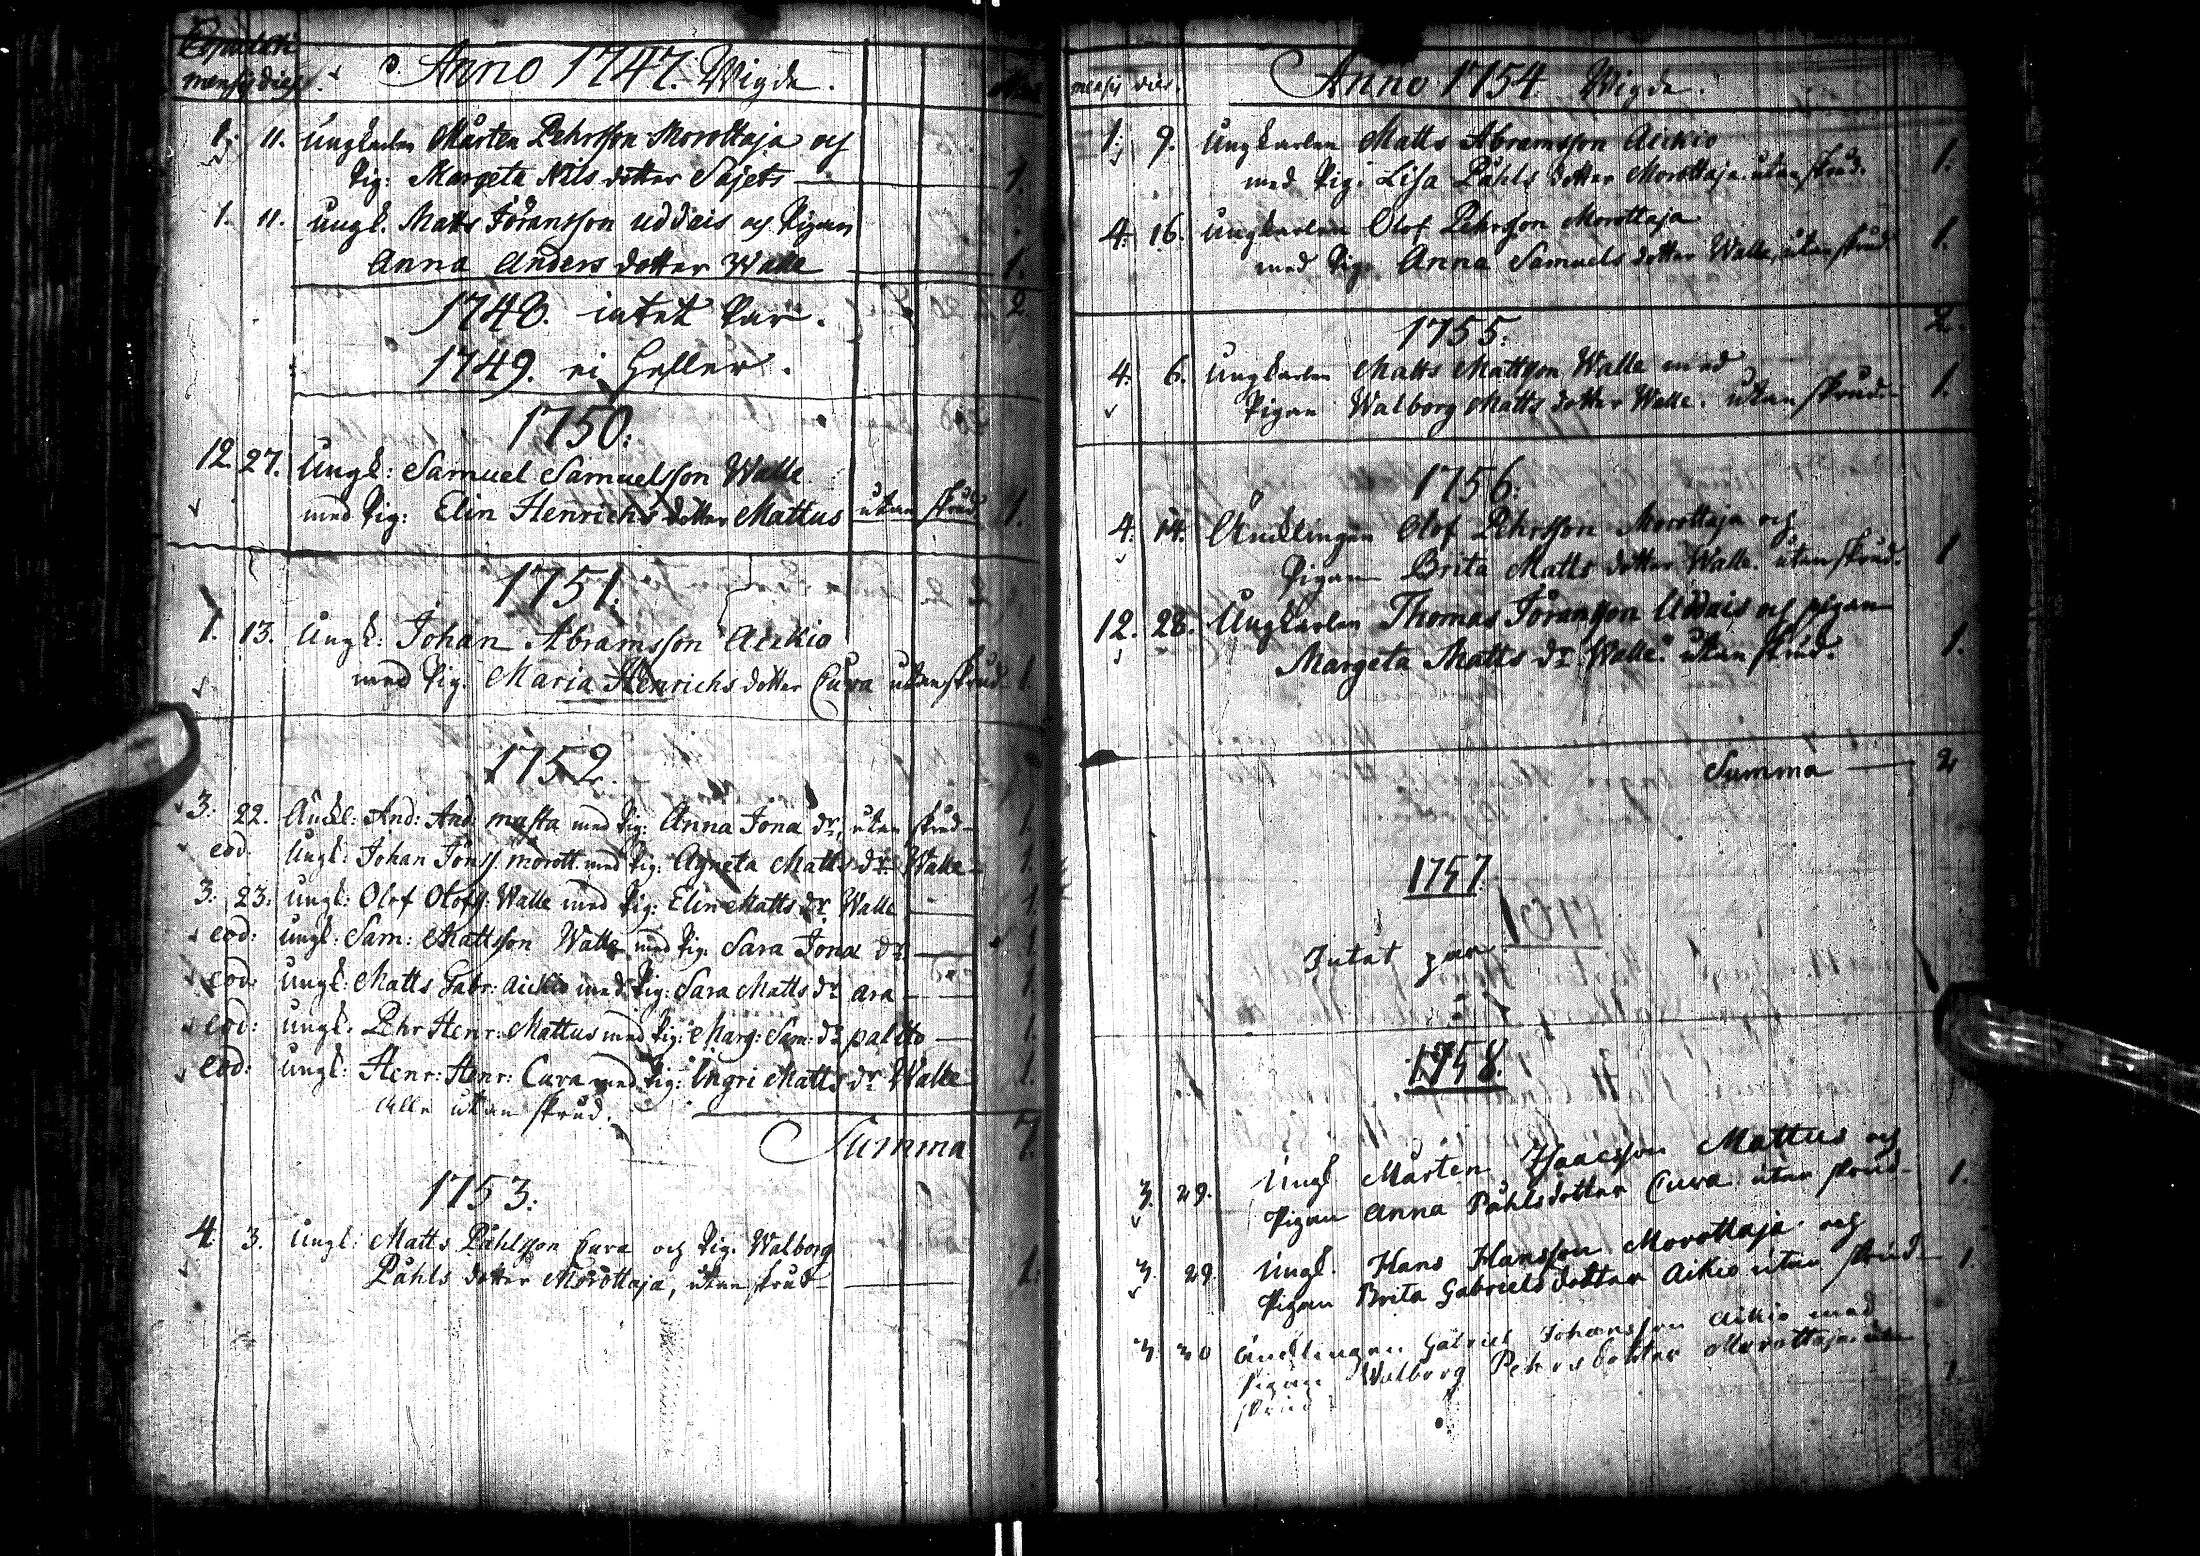 Copulati
mensis dies. Anno 1747. Wigde.
1. 11. Ungkarlen Mårten Pehrsson Morottaja och
Pig: Margeta Nils dotter Sajets — 1.
1. 11. Ungk. Matts Jöransson Uddais och Pigan
Anna Anders dotter Walle — 1.
2.
1748. intet Par.
1749. ei heller.
1750.
12. 27. Ungk: Samuel Samuelsson Walle
med Pig: Elin Henrichs dotter Mattus utan skrud 1.
1751.
1. 13. Ungk: Johan Abramsson Aickio
med Pig. Maria Henrichs dotter Cuva utan skrud 1.
1752.
3. 22. Änckl: And: And: masta med Pig: Anna Jona dr, utan skrud — 1.
eod. Ungk: Johan Jönss. morott. med Pig: Agneta Matts dr Walle — 1.
3. 23. Ungk: Olof Olofs: Walle med Pig: Elin Matts dr Walle — 1.
eod: Ungk: Sam: Mattsson Walle med Pig. Sara Jona dr — 1.
eod: Ungk: Matts Gabr: Aickio med Pig: Sara Matts dr ara — 1.
eod: Ungk. Pehr Henr: Mattus med Pig: Marg: Sam: dr palito — 1.
eod: Ungk: Henr: Henr: Cuva med Pig: Ingri Matts dr Walle 1.
Alle utan skrud.
Summa 7.
1753.
4. 3. Ungk: Matts Påhlsson Cuva och Pig. Walborg
Påhls dotter Morottaja, utan skrud — 1.
mensis dies. Anno 1754. Wigde.
1. 9. Ungkarlen Matts Abramsson Aickio
med Pig. Lisa Påhls dotter Morottaja. utan skrud. 1.
4. 16. Ungkarlen Olof Pehrsson Morottaja
med Pig. Anna Samuels dotter Walle, utan skrud 1.
2.
1755.
4. 6. Ungkarlen Matts Mattsson Walle med
Pigan Walborg Matts dotter Walle. utan skrud. 1.
1756.
4. 14. Äncklingen Olof Pehrsson Morottaja och
Pigan Brita Matts dotter Walle. utan skrud. 1
12. 28. Ungkarlen Thomas Jöransson Uddais och pigan
Margeta Matts dr Walle. utan skrud. 1.
Summa — 2
1757.
Intet par.
1758.
3. 29. Ungk. Mårten Isaacsson Mattus och
Pigan Anna Påhlsdotter Cuva utan skrud — 1.
3. 29. Ungk. Hans Hansson Morottaja och
Pigan Brita Gabriels dotter Aikio utan skrud — 1.
3. 30 Äncklingen Gabriel Johansson Aikio med
Pigan Walborg Pehrs dotter Morottaja utan
skrud 1.